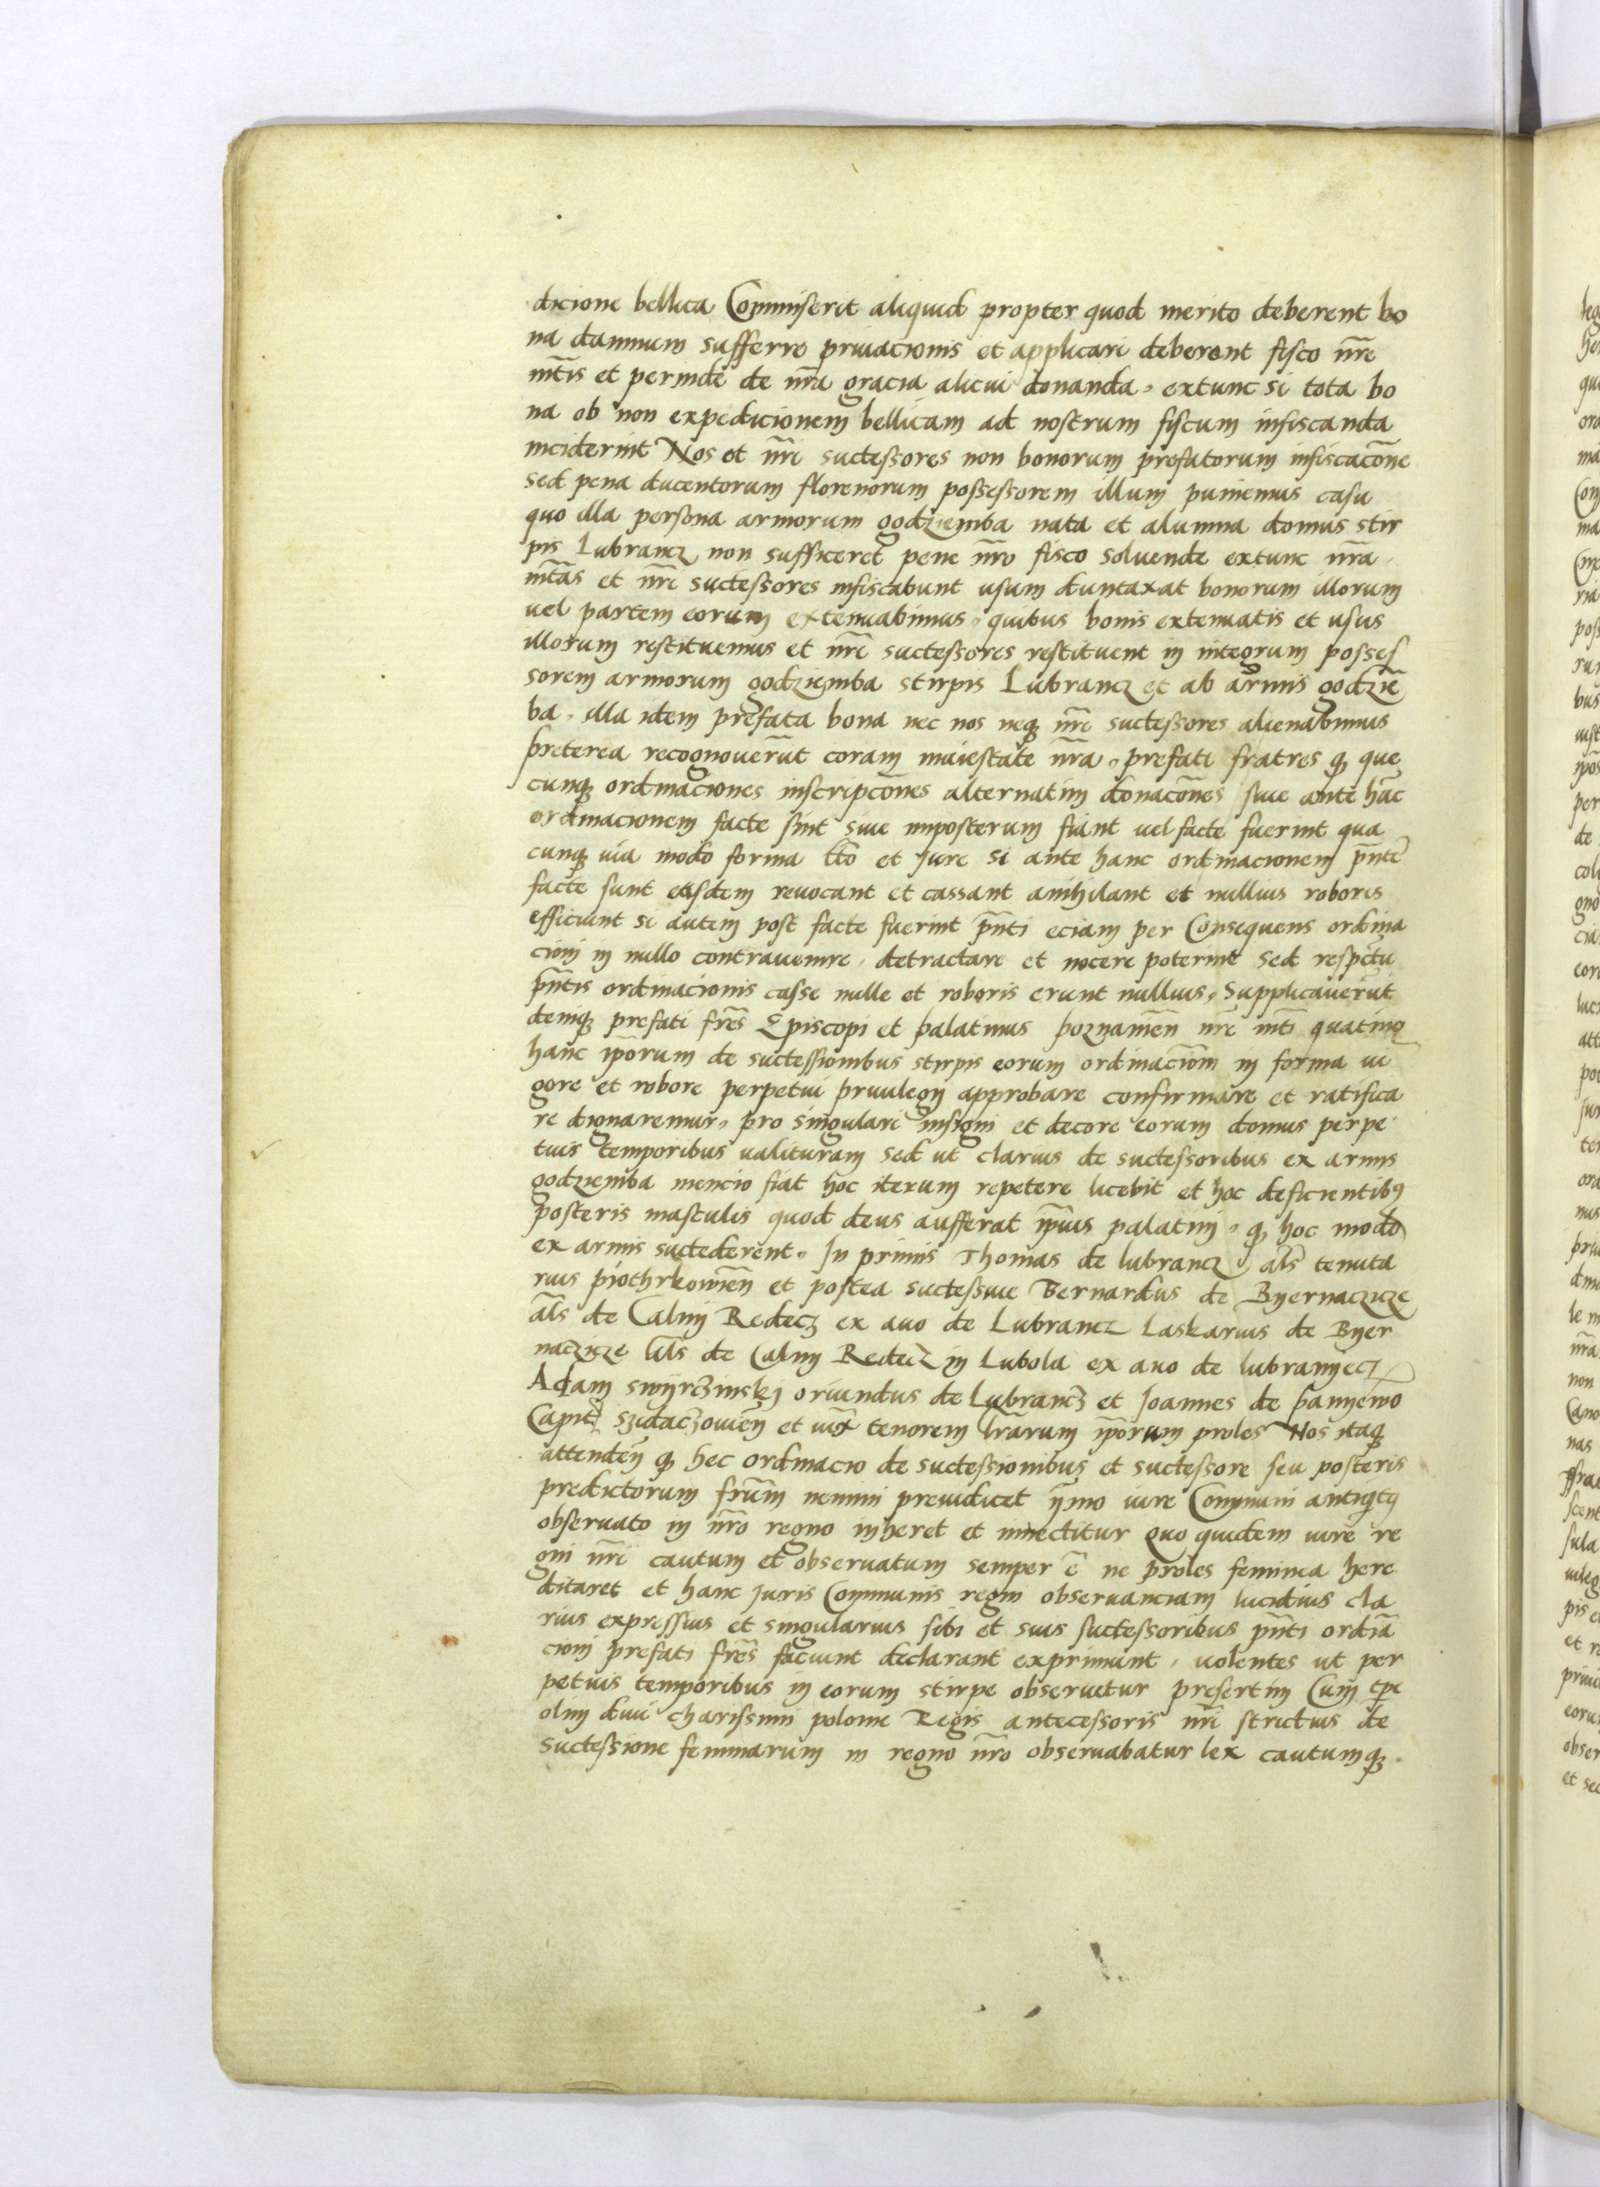 dicione bellica Commiserit aliquid propter quod merito deberent bo
na damnum sufferre priuacionis et applicari deberent fisco nr̄e
mt̄is et perinde de nr̄a gracia alicui donanda, extunc si tota bo
na ob non expedicionem bellicam ad nostrum fiscum infiscanda
inciderint Nos et nr̄i successores non bonorum prefatorum infiscacōne
sed pena ducentorum florenorum possessorem illum puniemus casu
quo illa persona armorum godziemba nata et alumna domus stir
pis Lubrancz non sufficeret pene nr̄o fisco soluende extunc nr̄a
mt̄as et nr̄i successores infiscabunt usum duntaxat bonorum illorum
uel partem eorum extenuabimus, quibus bonis extenuatis et usus
illorum restituemus et nr̄i successores restituent in integrum posses
sorem armorum godziemba stirpis Lubrancz et ab armis godziē
ba, illa idem prefata bona nec nos neqȝ nr̄i successores alienabimus
preterea recognouerūt coram maiestate nr̄a, prefati fratres qȝ que
cunqȝ ordinaciones inscripcōnes alternatim donacōnes siue ante hāc
ordinacionem facte sint siue imposterum fiant uel facte fuerint qua
cunqȝ uia modo forma tt̄o et Jure si ante hanc ordinacionem pn̄tē
facte sunt easdem reuocant et cassant anihilant et nullius roboris
efficiunt si autem post facte fuerint pn̄ti eciam per Consequens ordina
cioni in nullo contrauenire, detractare et nocere poterint sed respectu
pn̄tis ordinacionis casse nulle et roboris erunt nullius, Supplicauerūt
demqȝ prefati fr̄es Episcopi et palatinus poznanien̄ nr̄e mt̄i quatinꝰ
hanc ip̄orum de successionibus stirpis eorum ordinaciōm in forma ui
gore et robore perpetui priuilegij approbare confirmare et ratifica
re dignaremur, pro singulari insigni et decore eorum domus perpe
tuis temporibus ualituram sed ut clarius de successoribus ex armis
godziemba mencio fiat hoc iterum repetere licebit et hoc deficientibꝰ
posteris masculis quod deus aufferat ip̄ius palatini, qȝ hoc modo
ex armis succederent, In primis Thomas de lubrancz, al̄s tenuta
rius piothrkowien̄ et postea successiue Bernardus de Byernaczicze
al̄s de Calny Redecz ex auo de Lubrancz Laskarius de Byer
naczicze al̄s de Calny Redecz in Lubola ex auo de lubranyecz
Adam swyrczinskj oriundus de Lubrancz et Joannes de pannewo
Capit̄ szidaczowien̄ et iux̄ tenorem lr̄arum ip̄orum proles Nos itaqȝ
attenden̄ qȝ hec ordinacio de successionibus et successore seu posteris
predictorum frūm nemini preiudicet ymo iure Communi antiqitꝰ
obseruato in nr̄o regno inheret et innectitur Quo quidem iure re
gni nr̄i cautum et obseruatum semper ē ne proles feminea here
ditaret et hanc Juris Communis regni obseruanciam lucidius cla
rius expressius et singularius sibi et suis successoribus pn̄ti ordiā
cioni prefati fr̄es faciunt declarant exprimunt, uolentes ut per
petuis temporibus in eorum stirpe obseruetur presertim Cum tp̄e
olim diui charissimi polonie Regis antecessoris nr̄i strictius de
successione feminarum in regno nr̄o obseruabatur lex cautumqȝ